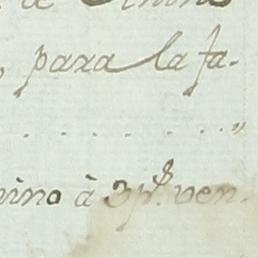 de
para la fa-
. . . . . . . "
nino à 3 p.s ven-